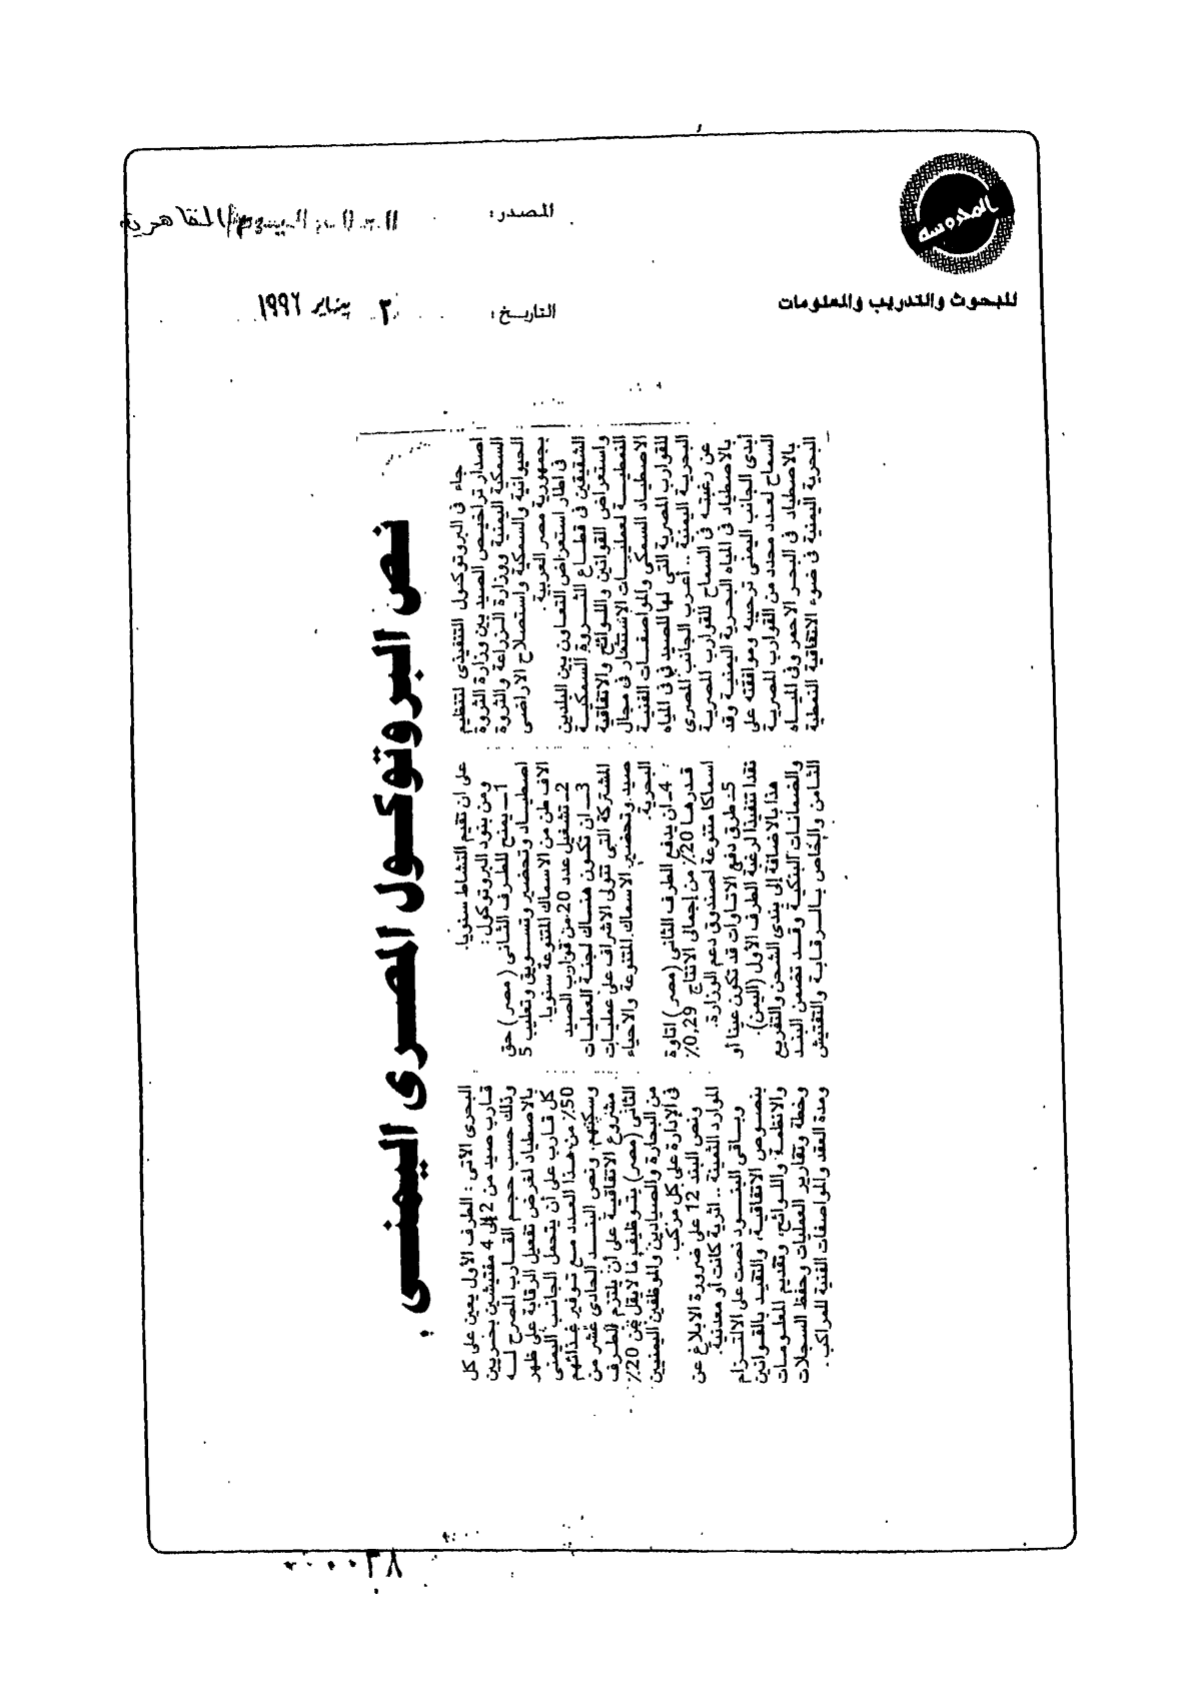 المحروسة
للبحوث والتدريب والمعلومات
المصدر: العالم اليوم / القاهرية
التاريخ: ٢ يناير ١٩٩٦
نص البروتوكول المصرى اليمنى
جاء فى البروتوكول التنفيذى لتنظيم
اصدار تراخيص الصيد بين وزارة الثروة
السمكية اليمنية ووزارة الزراعة والثروة
الحيوانية والسمكية واستصلاح الاراضى
بجمهورية مصر العربية.
فى اطار استعراض التعاون بين البلدين
الشقيقين فى قطاع الثروة السمكية
واستعراض القوانين واللوائح والاتفاقية
النمطية لعمليات الاستثمار فى مجال
الاصطياد السمكى والمواصفات الفنية
للقوارب المصرية التى لها للصيد فى فى المياه
البحرية اليمنية .. أعرب الجانب المصرى
عن رغبته فى السماح للقوارب المصرية
بالاصطياد فى المياه البحرية اليمنية وقد
أبدى الجانب اليمنى ترحيبه وموافقته على
السماح لعدد محدد من القوارب المصرية
بالاصطياد فى البحر الاحمر وفى المياه
البحرية اليمنية فى ضوء الاتفاقية النمطية
على ان تقيم النشاط سنويا.
ومن بنود البروتوكول:
1ـ يمنح للطرف الثانى (مصر) حق
اصطياد وتحضير وتسويق وتعليب 5
الاف طن من الاسماك المتنوعة سنويا.
2ـ تشغيل عدد 20 من قوارب الصيد
3ـ ان تكون هناك لجنة العمليات
المشتركة التى تتولى الاشراف على عمليات
صيد وتحضير الاسماك المتنوعة والاحياء
البحرية.
4ـ أن يدفع الطرف الثانى (مصر) اتاوة
قدرها 20٪ من إجمالى الانتاج 0,29٪
اسماكا متنوعة لصندوق دعم الوزارة.
5ـ طرق دفع الاتاوات قد تكون عينا أو
نقدا تنفيذا لرغبة الطرف الأول (اليمن).
هذا بالاضافة إلى بندى الشحن والتفريغ
والضمانات البنكية وقد تضمن البند
الثامن والخاص بالرقابة والتفتيش
البحرى الآتى: الطرف الأول يعين على كل
قارب صيد من 2 إلى 4 مفتشين بحريين
وذلك حسب حجم القارب المصرح له
بالاصطياد لغرض تفعيل الرقابة على ظهر
كل قارب على أن يتحمل الجانب اليمنى
50٪ من هذا العدد مع توفير غذائهم
وسكنهم. ونص البند الحادى عشر من
مشروع الاتفاقية على أن يلتزم الطرف
الثانى (مصر) بتوظيف ما لايقل عن 20٪
من البحارة والصيادين والموظفين اليمنيين
فى الإدارة على كل مركب.
ونص البند 12 على ضرورة الابلاغ عن
الموارد الثمينة .. اثرية كانت أو معدنية.
وباقى البنود نصت على الالتزام
بنصوص الاتفاقية، والتقيد بالقوانين
والانظمة واللوائح، وتقديم المعلومات
وخطة وتقارير العمليات وحفظ السجلات
ومدة العقد والمواصفات الفنية للمراكب.